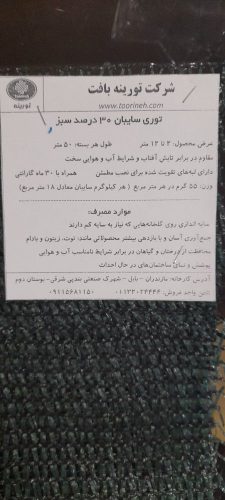 شرکت تورینه بافت
www.toorineh.com
تورینه
توری سایبان ۳۰ درصد سبز
عرض محصول: ۲ تا ۱۲ متر طول هر بسته: ۵۰ متر
مقاوم در برابر تابش آفتاب و شرایط آب و هوایی سخت
دارای لبه‌های تقویت شده برای نصب مطمئن همراه با ۳۰ ماه گارانتی
وزن: ۵۵ گرم در هر متر مربع ( هر کیلوگرم سایبان معادل ۱۸ متر مربع)
موارد مصرف:
سایه اندازی روی گلخانه‌هایی که نیاز به سایه کم دارند
جمع‌آوری آسان و با بازدهی بیشتر محصولاتی مانند: توت، زیتون و بادام
محافظت از درختان و گیاهان در برابر شرایط نامناسب آب و هوایی
پوشش و نمای ساختمان‌های در حال احداث
آدرس کارخانه: مازندران - بابل - شهرک صنعتی بندپی شرقی- بوستان دوم
تلفن واحد فروش: ۰۱۱۳۲۰۲۴۴۴۴ ۰۹۱۱۵۶۸۱۱۵۰